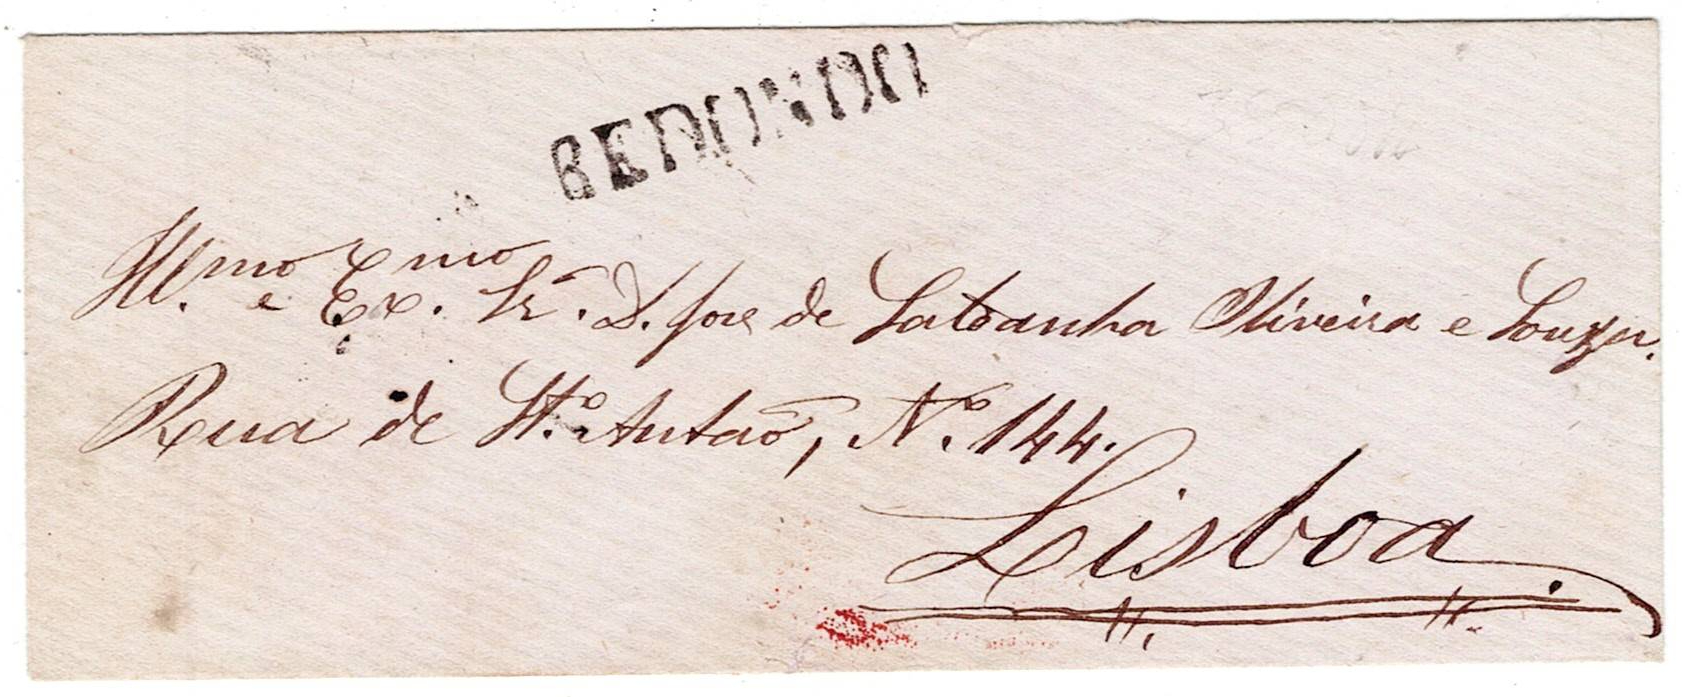 REDONDO
Ill.mo e Ex.mo Sr. D. Jose de Saldanha Oliveira e Souza.
Rua de St.o Antaõ, N.o 144.
Lisboa.